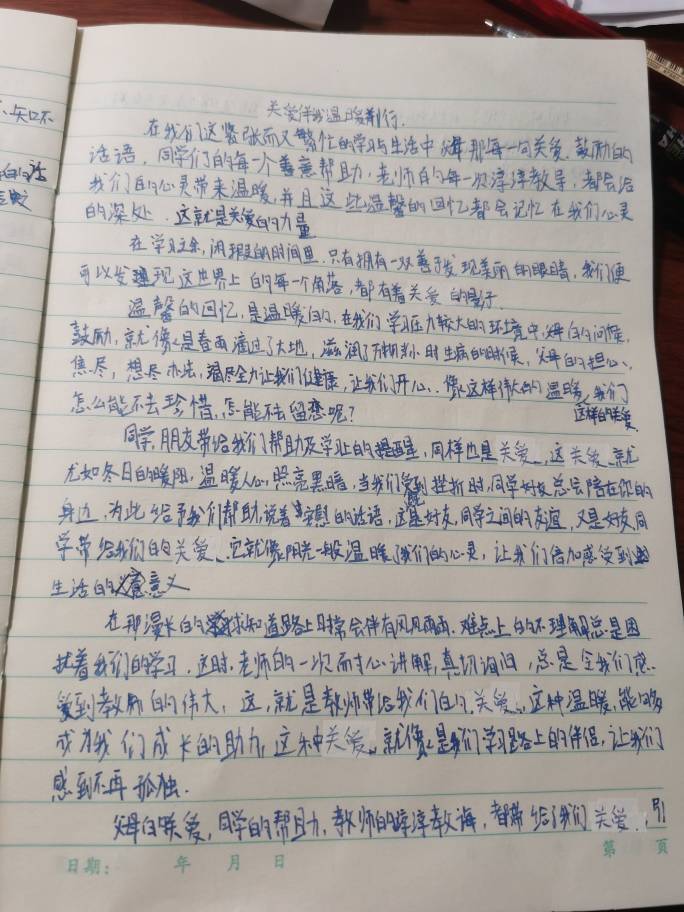 关爱伴我温暖前行.
在我们这紧张而又繁忙的学习与生活中 父母那每一句关爱、鼓励的
话语,同学们的每一个善意帮助,老师的每一次谆谆教导,都会给
我们的心灵带来温暖,并且这些温馨的回忆都会记忆在我们心灵
的深处.这就是关爱的力量
在学习之余,闲暇的时间里.只有拥有一双善于发现美丽的眼睛,我们便
可以发现 这世界上的每一个角落,都有着关爱的影子.
温馨的回忆,是温暖的,在我们学习压力较大的环境中,父母的问候.
鼓励,就像是春雨滴过了大地,滋润了万物.小时生病的时候,父母的担心、
焦虑,想尽办法,竭尽全力让我们健康,让我们开心、像这样伟大的温暖,我们
怎么能不去珍惜,怎能不去留恋呢?
这样的关爱
同学,朋友带给我们帮助及学习上的提醒,同样也是关爱、这关爱、就
尤如冬日的暖阳,温暖人心,照亮黑暗,当我们受到挫折时,同学好友总会陪在你的
身边,为此给予我们帮助,说着安慰的话语,这是好友,同学之间的友谊,又是好友,同
学带给我们的关爱、它就像阳光一般温暖了我们的心灵,让我们倍加感受到
生活的意义
在那漫长的求知道路上时常会伴有风风雨雨.难点上的不理解总是困
扰着我们的学习.这时,老师的一次耐心讲解,真切询问,总是令我们感
受到教师的伟大,这,就是教师带给我们的关爱、这种温暖,能够
成为我们成长的助力,这种关爱、就像是我们学习路上的伴侣,让我们
感到不再孤独.
父母的关爱,同学的帮助,教师的谆谆教诲,都带给了我们关爱、,引
日期: 年 月 日 第 页